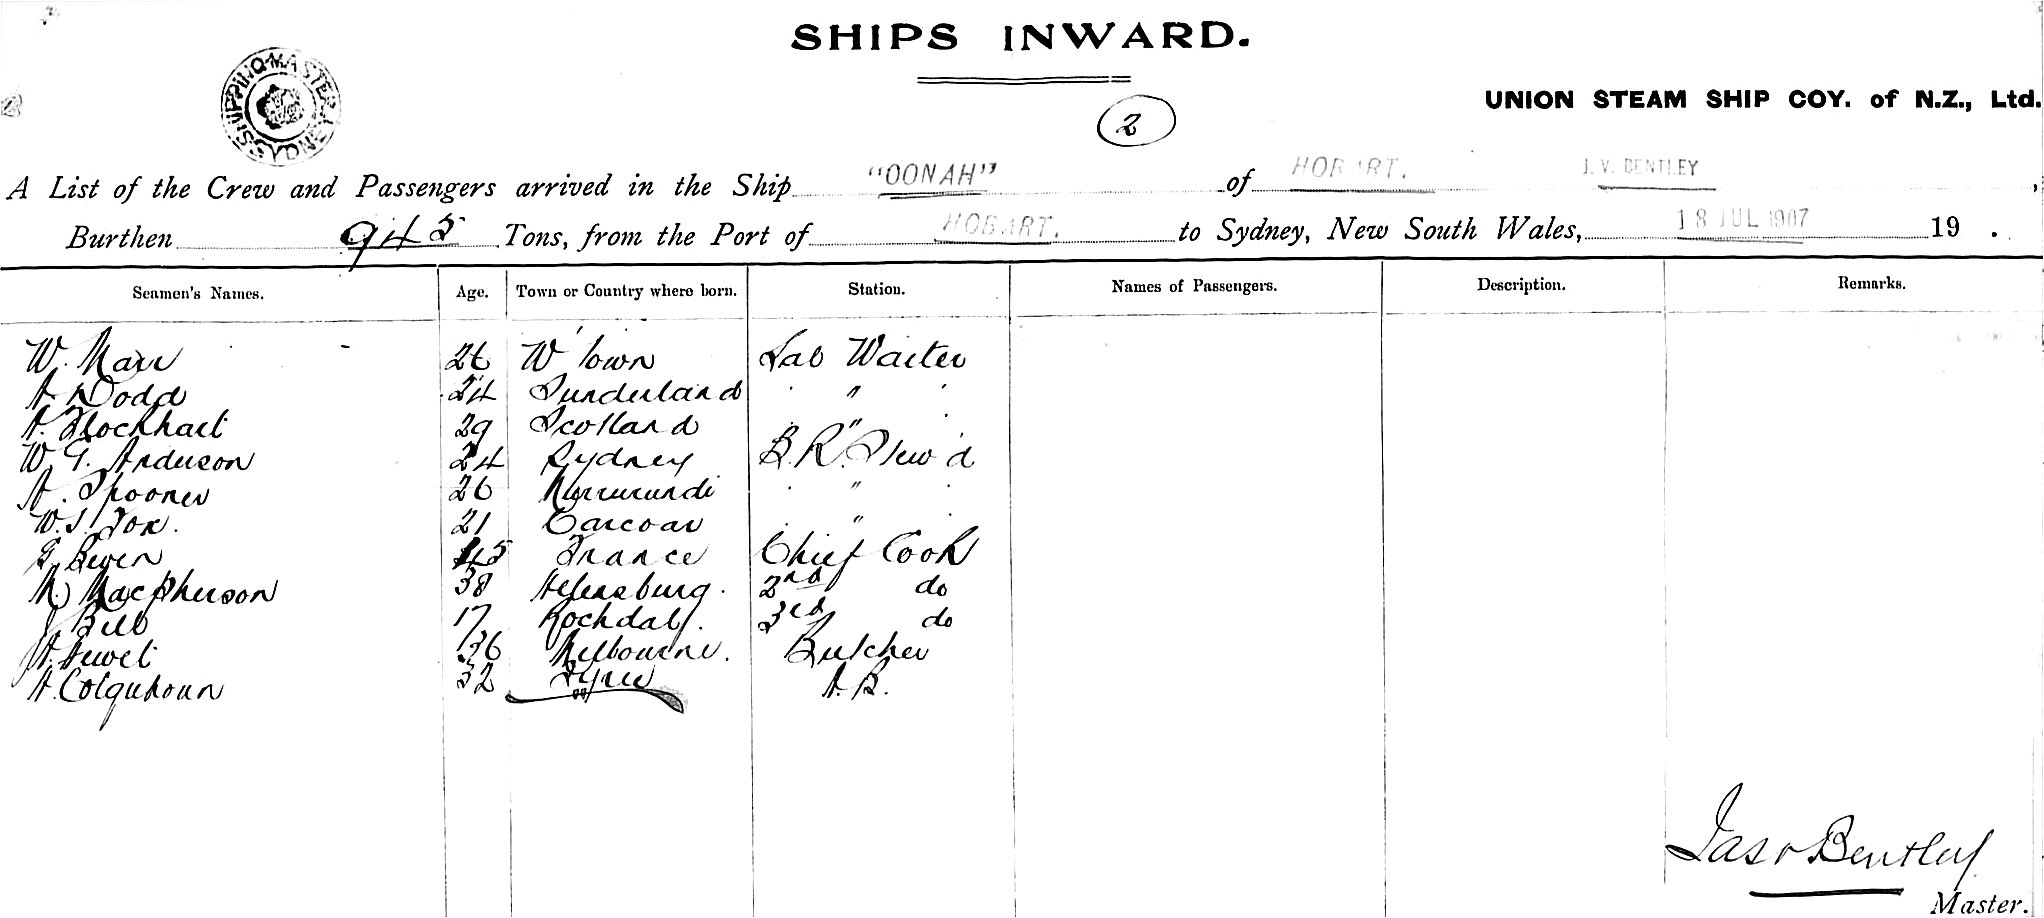 SHIPS INWARD.
SHIPPING MASTER SYDNEY
2
UNION STEAM SHIP COY. of N.Z., Ltd.
A List of the Crew and Passengers arrived in the Ship "OONAH" of HOBART. J. V. BENTLEY,
Burthen 945 Tons, from the Port of HOBART. to Sydney, New South Wales, 18 JUL 1907 19 .
Seamen's Names. Age. Town or Country where born. Station. Names of Passengers. Description. Remarks.
W. Marr 26 W'Town Sal Waiter
A Dodd 24 Sunderland " 
A. Stockhart 29 Scotland "
W G. Anderson 24 Sydney B. R. Stew'd
A. Spooner 26 Murrurundi "
W. S. Fox. 21 Carcoar "
Beven 45 France Chief Cook
MacPherson 38 Helensburg. 2nd do
J Bell 17 Rochdal. 3rd do
A. Hewet 36 Melbourne. Butcher
A. Colquhoun 32 Tyree A. B.
Jas V Bentley
Master.